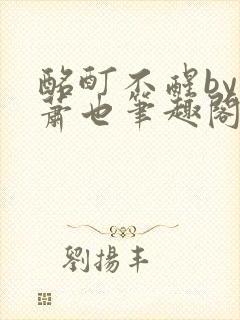 酩酊不醒by
萧也筆趣閣
劉揚丰